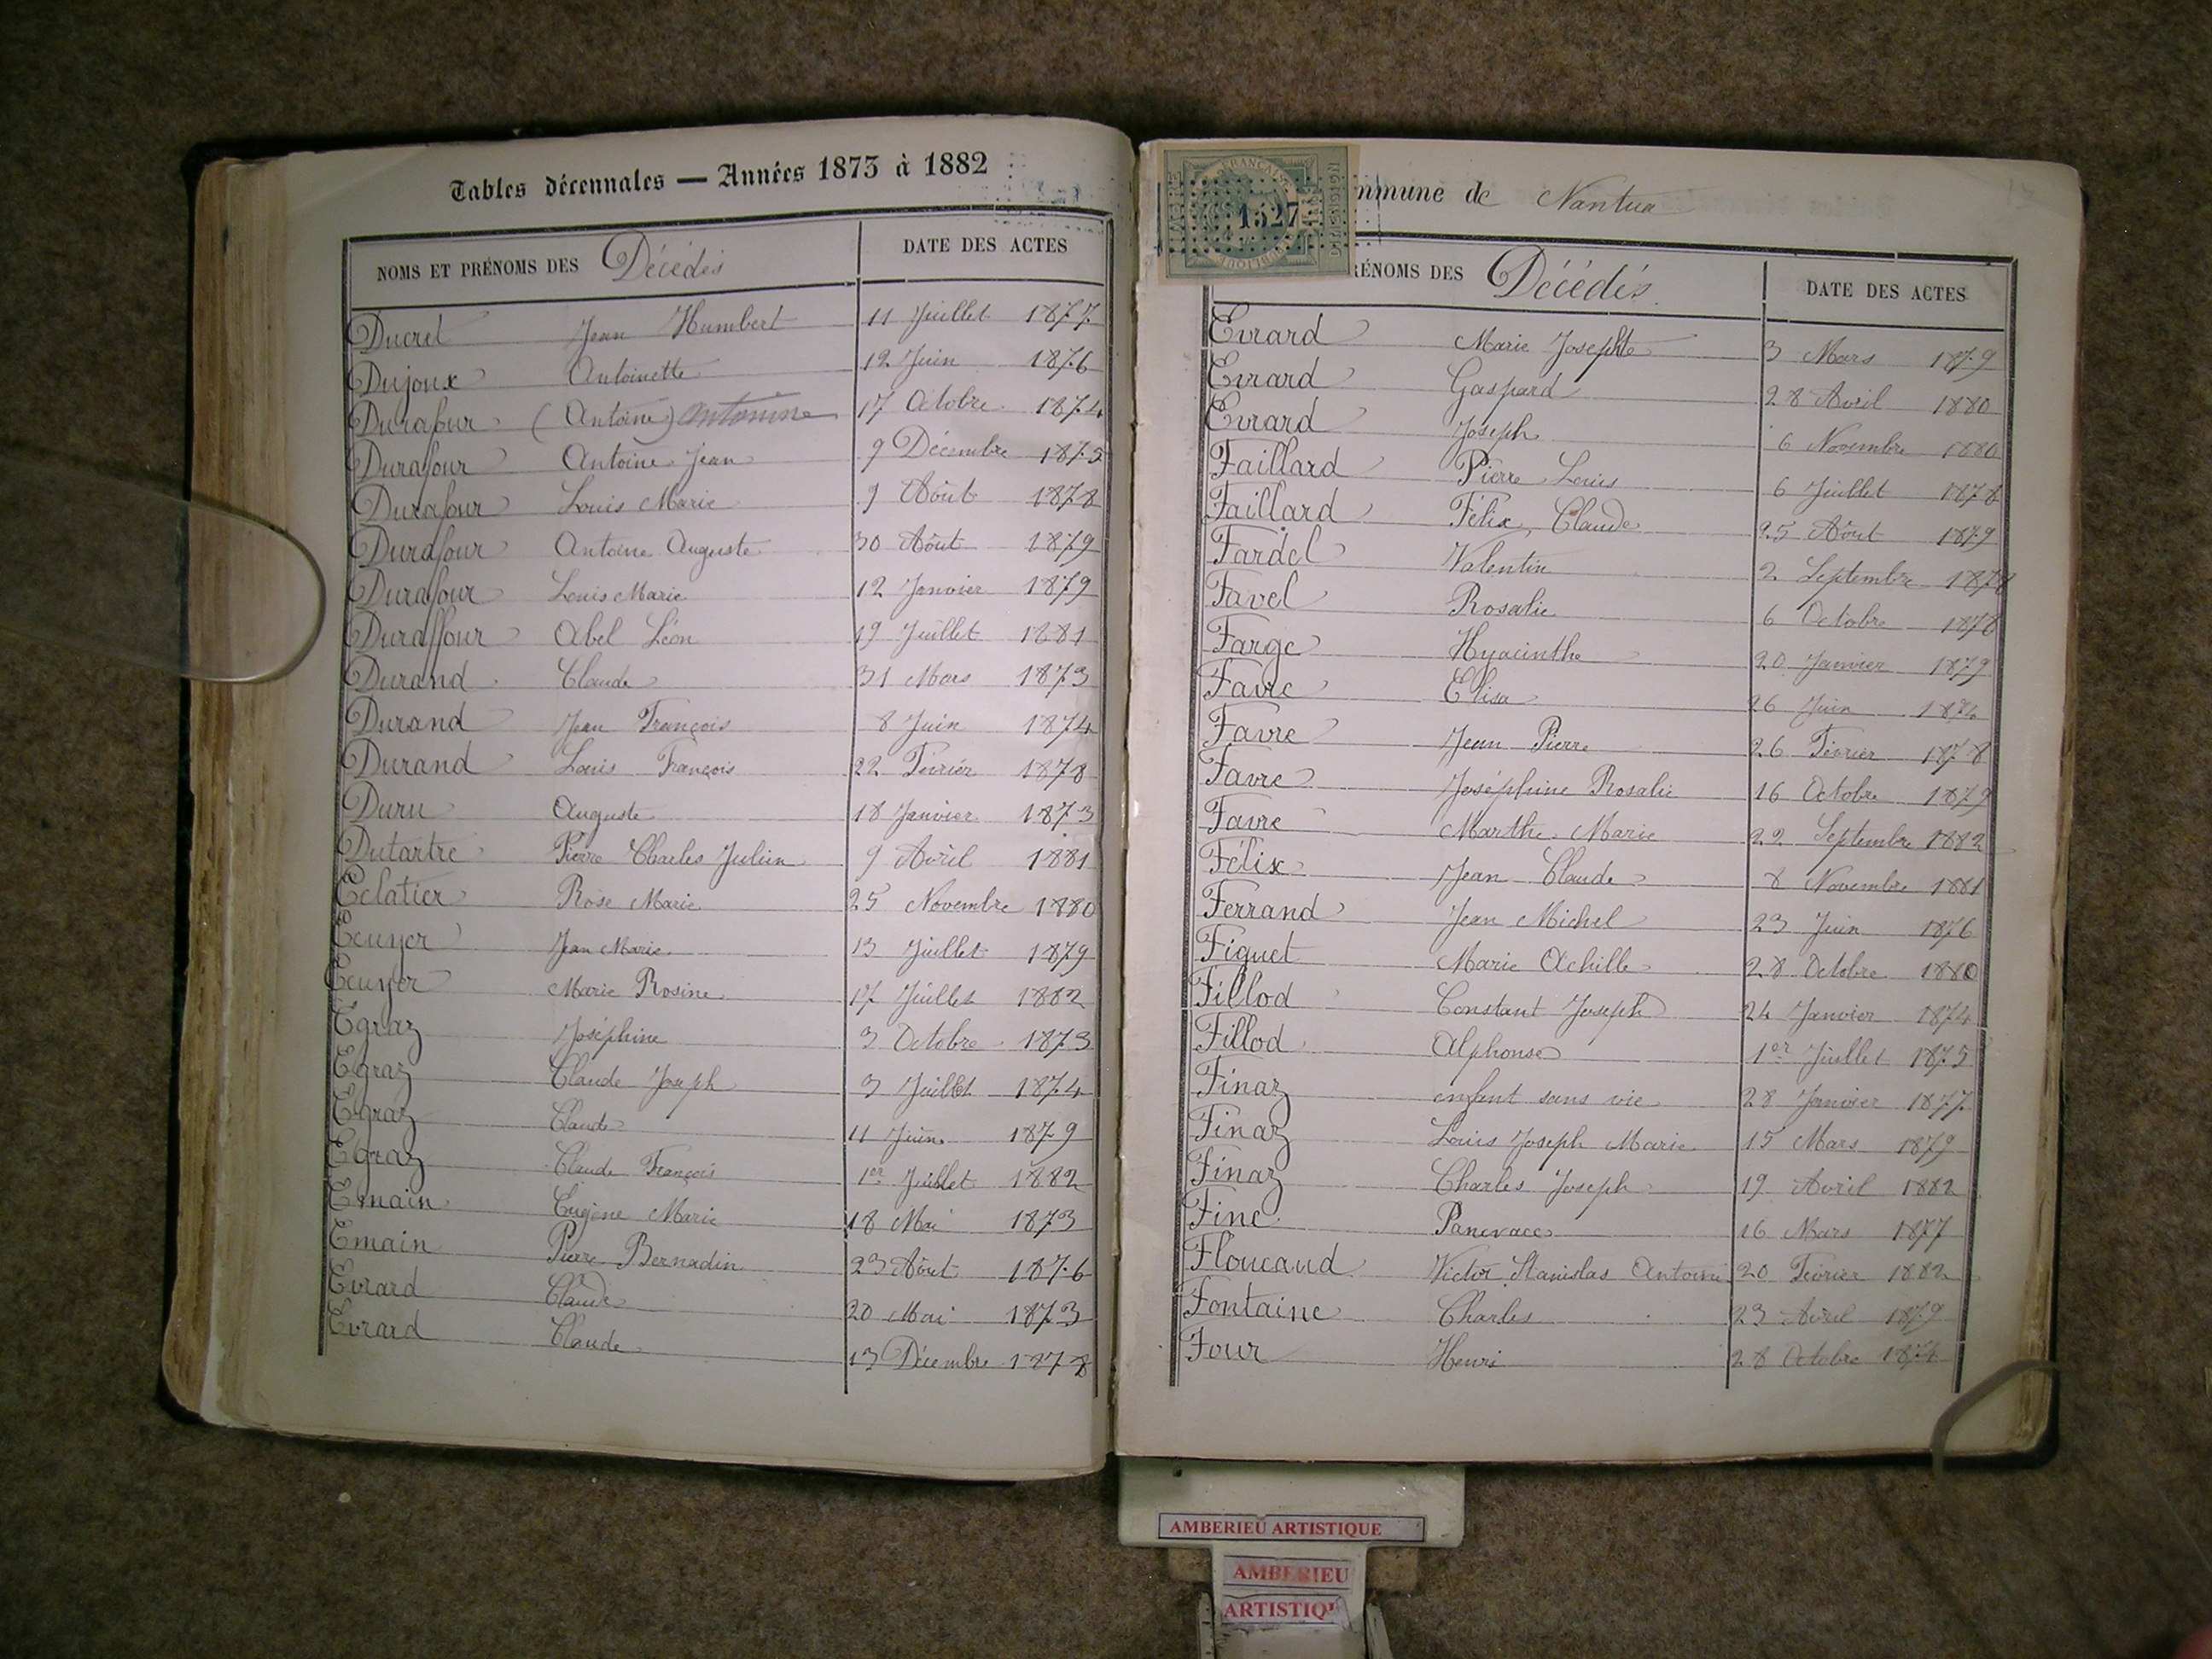 Tables décennales — Années 1873 à 1882
NOMS ET PRÉNOMS DES Décédés DATE DES ACTES
Ducret Jean Humbert 11 Juillet 1877
Dujoux Antoinette 12 Juin 1876
Durafour (Antoine) Antonine 17 Octobre 1874
Durafour Antoine Jean 9 Décembre 1875
Durafour Louis Marie 9 Août 1878
Durafour Antoine Auguste 30 Août 1879
Durafour Louis Marie 12 Janvier 1879
Duraffour Abel Léon 19 Juillet 1881
Durand Claude 31 Mars 1873
Durand Jean François 8 Juin 1874
Durand Louis François 22 Février 1878
Duru Auguste 18 Janvier 1873
Dutartre Pierre Charles Julien 9 Avril 1881
Eclatier Rose Marie 25 Novembre 1880
Ecuyer Jean Marie 13 Juillet 1879
Ecuyer Marie Rosine 17 Juillet 1882
Egraz Joséphine 3 Octobre 1873
Egraz Claude Joseph 3 Juillet 1874
Egraz Claude 11 Juin 1879
Egraz Claude François 1er Juillet 1882
Emain Eugène Marie 18 Mai 1873
Emain Pierre Bernadin 23 Août 1876
Evrard Claude 20 Mai 1873
Evrard Claude 13 Décembre 1878
FRANÇAISE
1527
mmune de Nantua
RÉNOMS DES Décédés DATE DES ACTES
Evrard Marie Josephte 3 Mars 1879
Evrard Gaspard 28 Avril 1880
Evrard Joseph 6 Novembre 1880
Faillard Pierre Louis 6 Juillet 1878
Faillard Félix Claude 25 Août 1879
Fardel Valentin 2 Septembre
Favel Rosalie 6 Octobre
Farge Hyacinthe 20 Janvier 1879
Favre Elisa 26 Juin 1874
Favre Jean Pierre 26 Février 1878
Favre Joséphine Rosalie 16 Octobre 1879
Favre Marthe Marie 22 Septembre 1882
Félix Jean Claude 8 Novembre 1881
Ferrand Jean Michel 23 Juin 1876
Figuet Marie Achille 28 Octobre 1880
Fillod Constant Joseph 24 Janvier 1874
Fillod Alphonse 1er Juillet 1875
Finaz enfant sans vie 28 Janvier 1877
Finaz Louis Joseph Marie 15 Mars 1879
Finaz Charles Joseph 19 Avril 1882
Fine 16 Mars 1877
Floucaud Victor Stanislas Antoine 20 Février 1882
Fontaine Charles 23 Avril 1879
Four Henri 28 Octobre
AMBERIEU ARTISTIQUE
AMBERIEU
ARTISTIQU